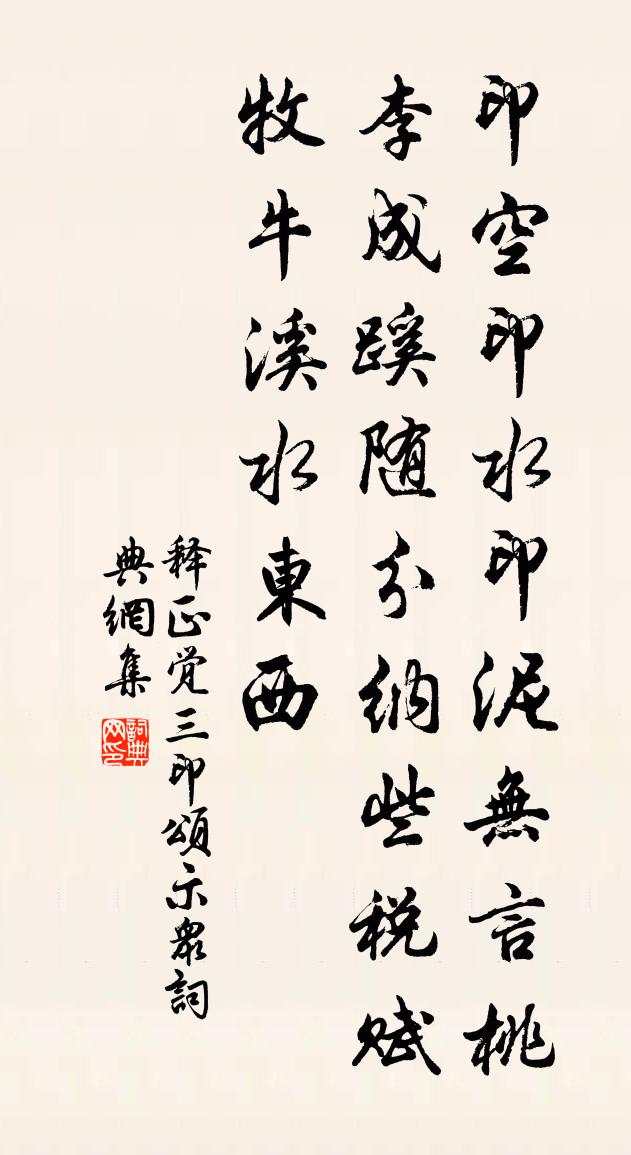 印空印水印泥無言桃
李成蹊随分納些税賦
牧牛溪水東西
释正觉三印頌示衆詞
典網集
詞典網印